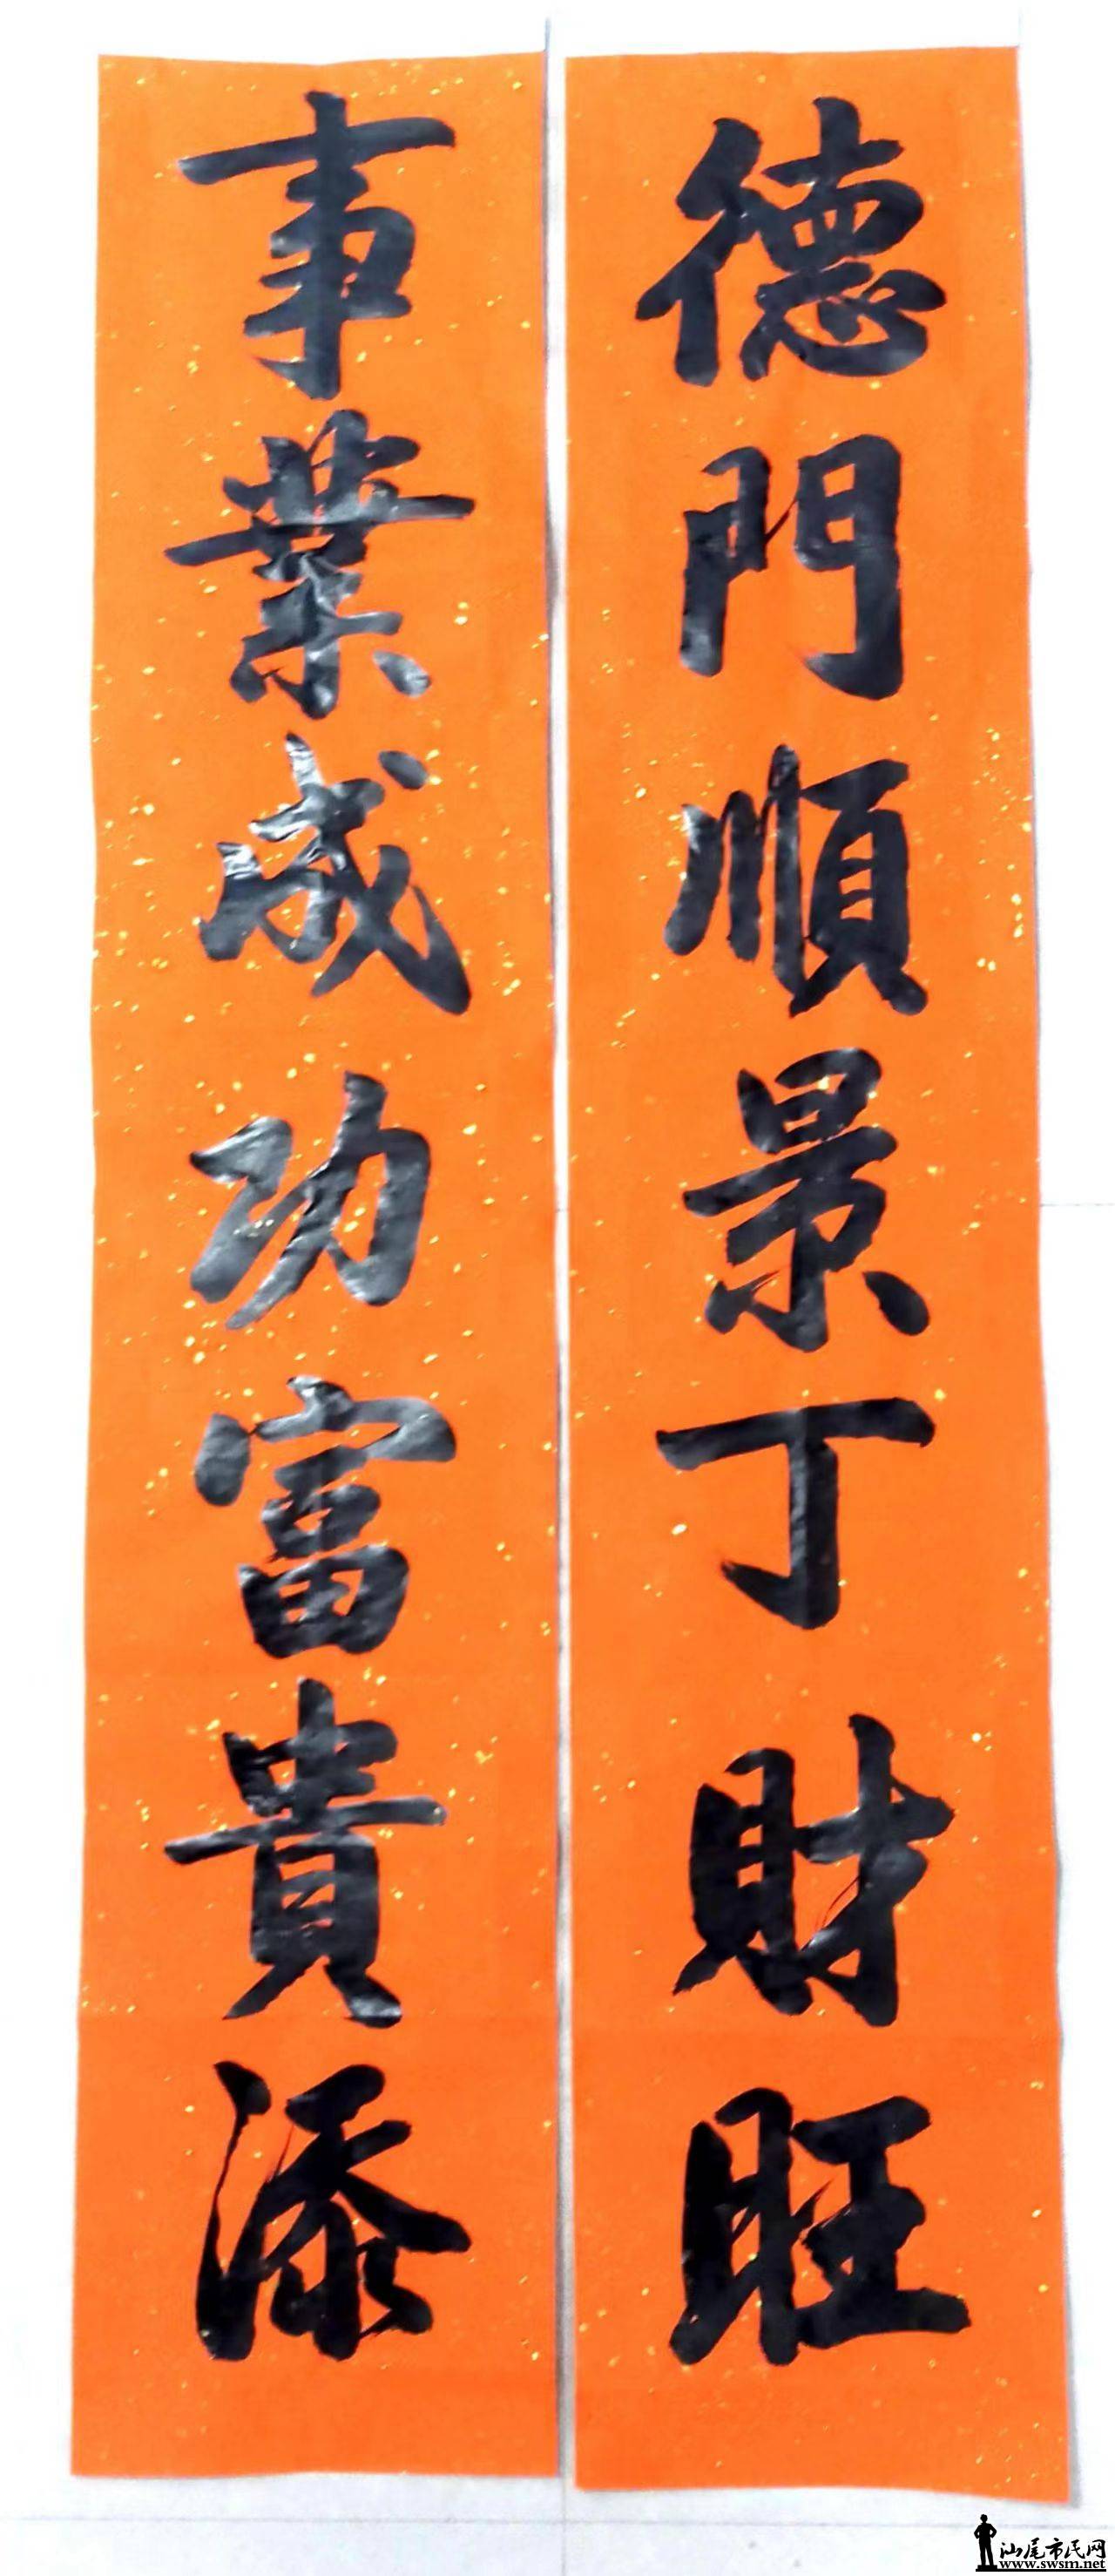 德門順景丁財旺
事業成功富貴添
汕尾市民网
www.swsm.net